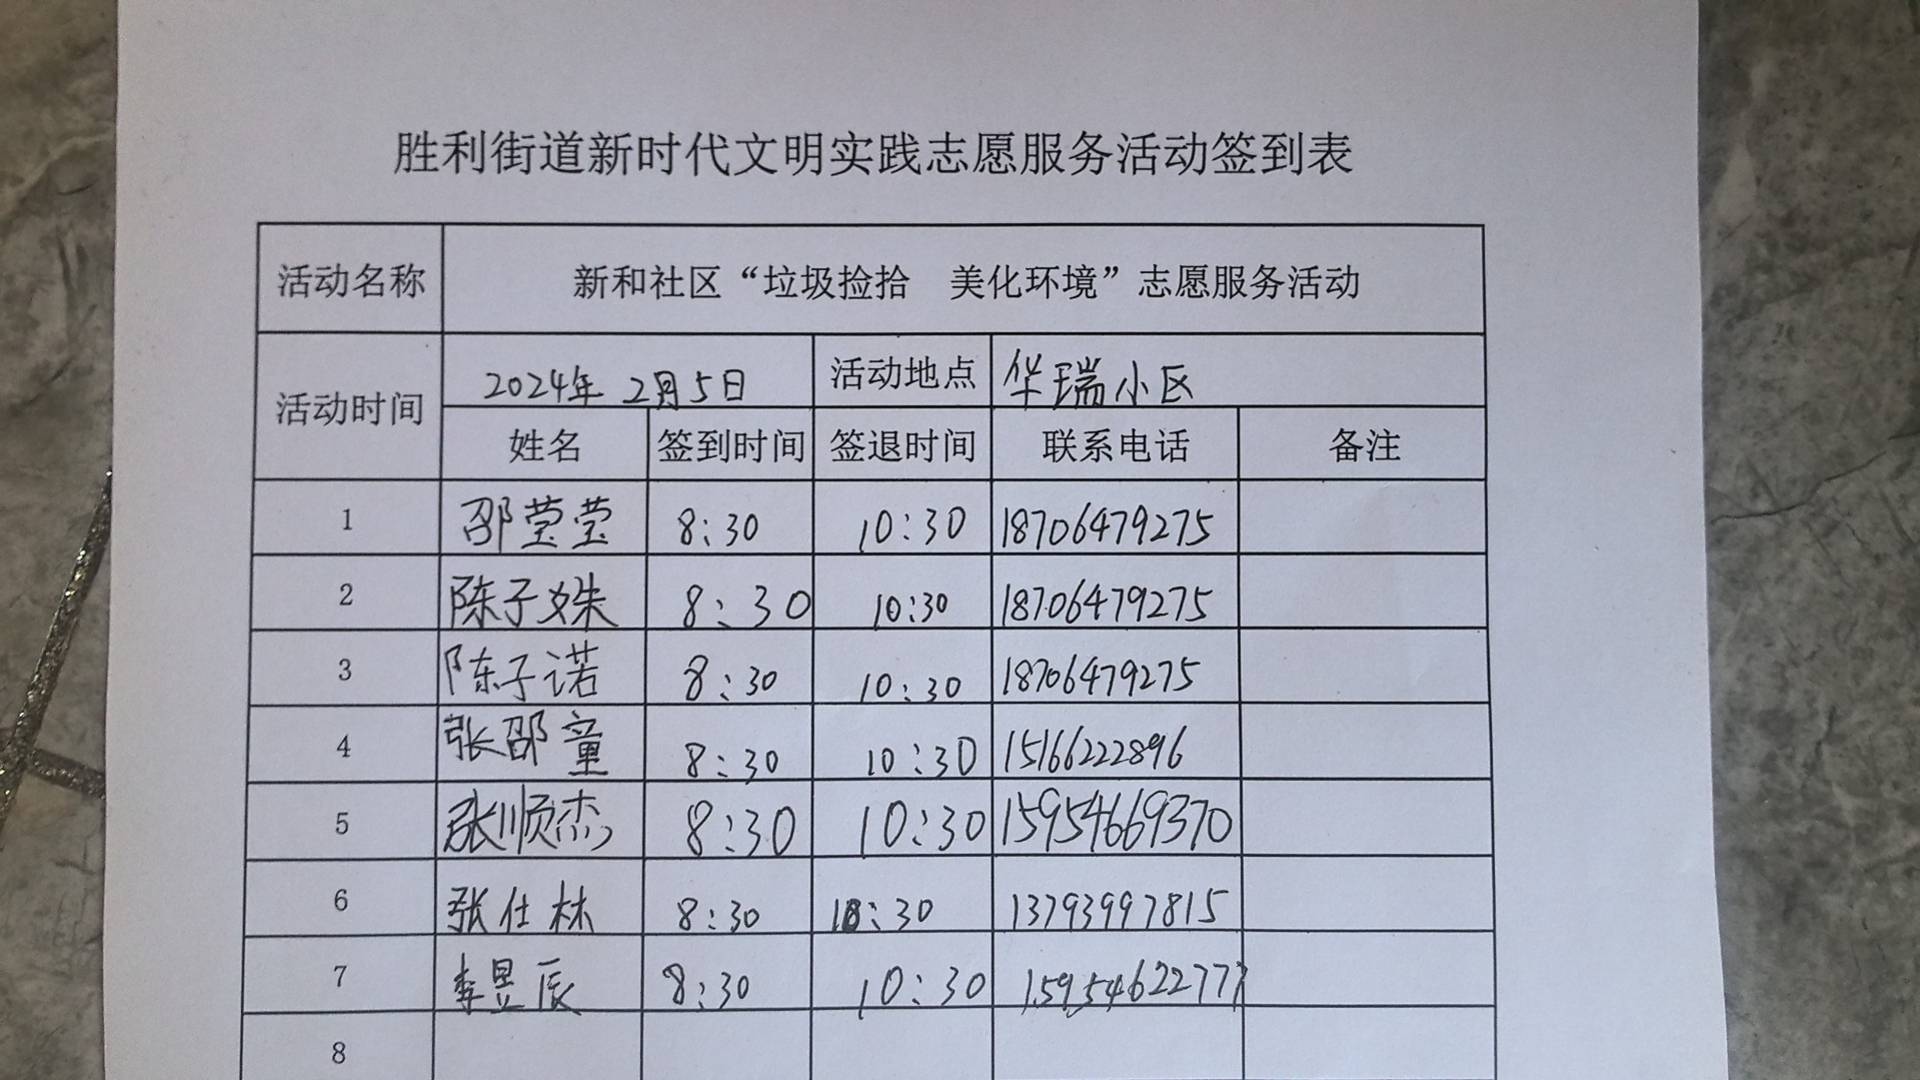 胜利街道新时代文明实践志愿服务活动签到表
活动名称 新和社区“垃圾捡拾 美化环境”志愿服务活动
活动时间 2024年2月5日 活动地点 华瑞小区
姓名 签到时间 签退时间 联系电话 备注
1 邵莹莹 8:30 10:30 18706479275
2 陈子姝 8:30 10:30 18706479275
3 陈子诺 8:30 10:30 18706479275
4 张邵童 8:30 10:30 15166222896
5 张顺杰 8:30 10:30 15954669370
6 张仕林 8:30 10:30 13793997815
7 李昱辰 8:30 10:30 15954622777
8